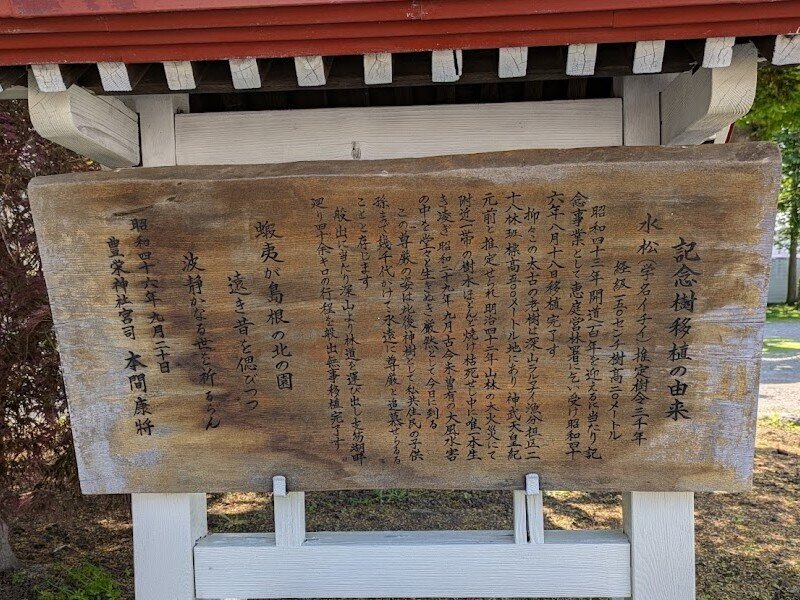 記念樹移植の由来
水松(学名イチイ)推定樹令三千年
経経一五〇センチ樹高一〇メートル
昭和四十三年開道百年を迎えるに当たり記
念事業として恵庭営林署に乞い受け昭和四十
六年八月十八日移植完了す
抑々この太古の吾樹は深山ラルマナイ
十八林班標高五〇〇メートル地にあり神武天皇紀
元前と推定せられ明治四十二年山林の大火災にて
附近一帯の樹木ほとんど焼け枯死せし中に唯一本生
き凌ぎ昭和二十九年九月古今未曽有の大風水害
の中を堂々と生きぬき厳然として今日に到る
この尊厳の姿は此後神樹として私共住民の子供
孫まで幾千代かけて永遠に尊厳を追慕せらるる
ことと存じます
搬出に当たり深山より林道を運び出し支笏湖畔
廻り四十余キロの行程を搬出無事移植完了です
蝦夷が島根の北の園
遠き昔を偲びつつ
波静かなる世を祈るらん
昭和四十六年九月二十日
豊栄神社宮司 本間康将